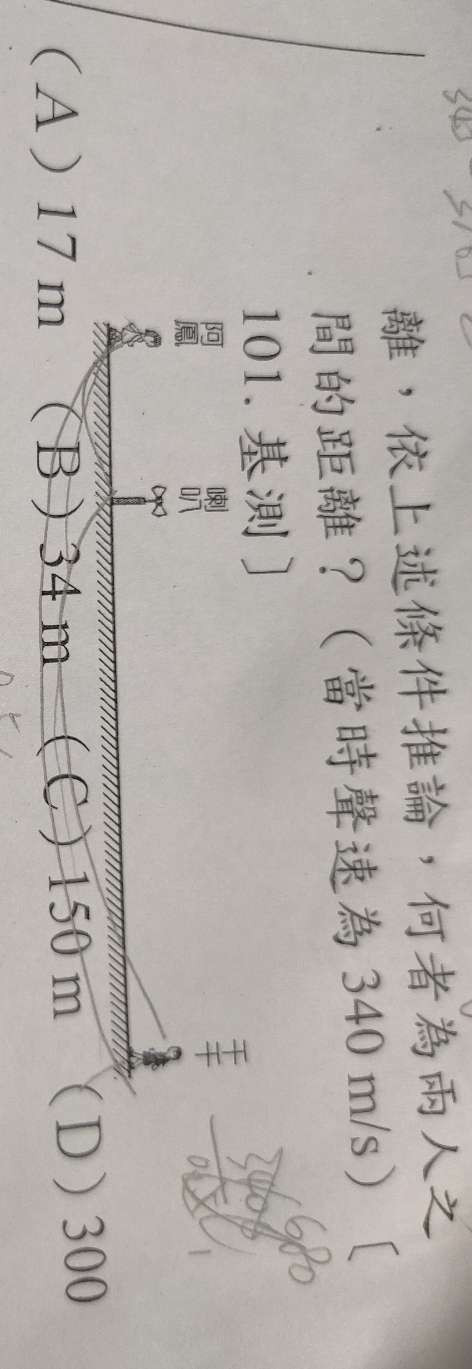 離，依上述條件推論，何者為兩人之
間的距離？（當時聲速為 340 m/s）〔
101. 基測〕
阿鳳 喇叭 千千
(A) 17 m (B) 34 m (C) 150 m (D) 300
340 680